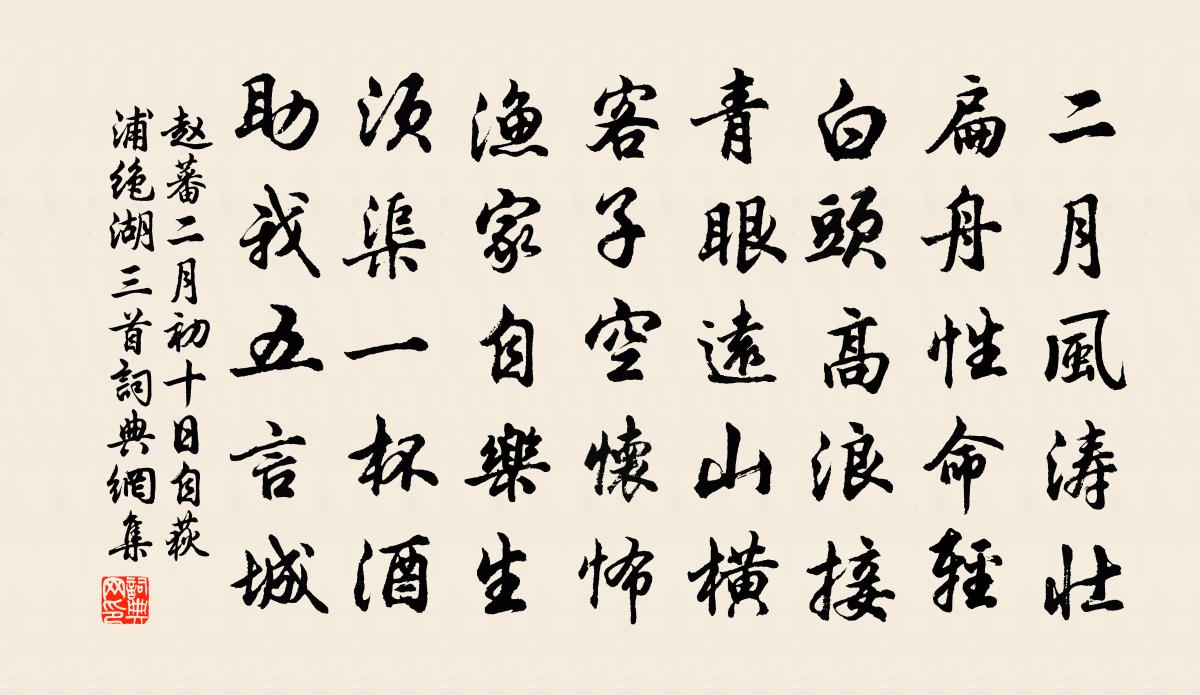 二月風涛壮
扁舟性命輕
白頭高浪接
青眼遠山横
客子空懷怖
漁家自樂生
須渠一杯酒
助我五言城
赵蕃二月初十日自荻
浦绝湖三首詞典網集
詞典网印